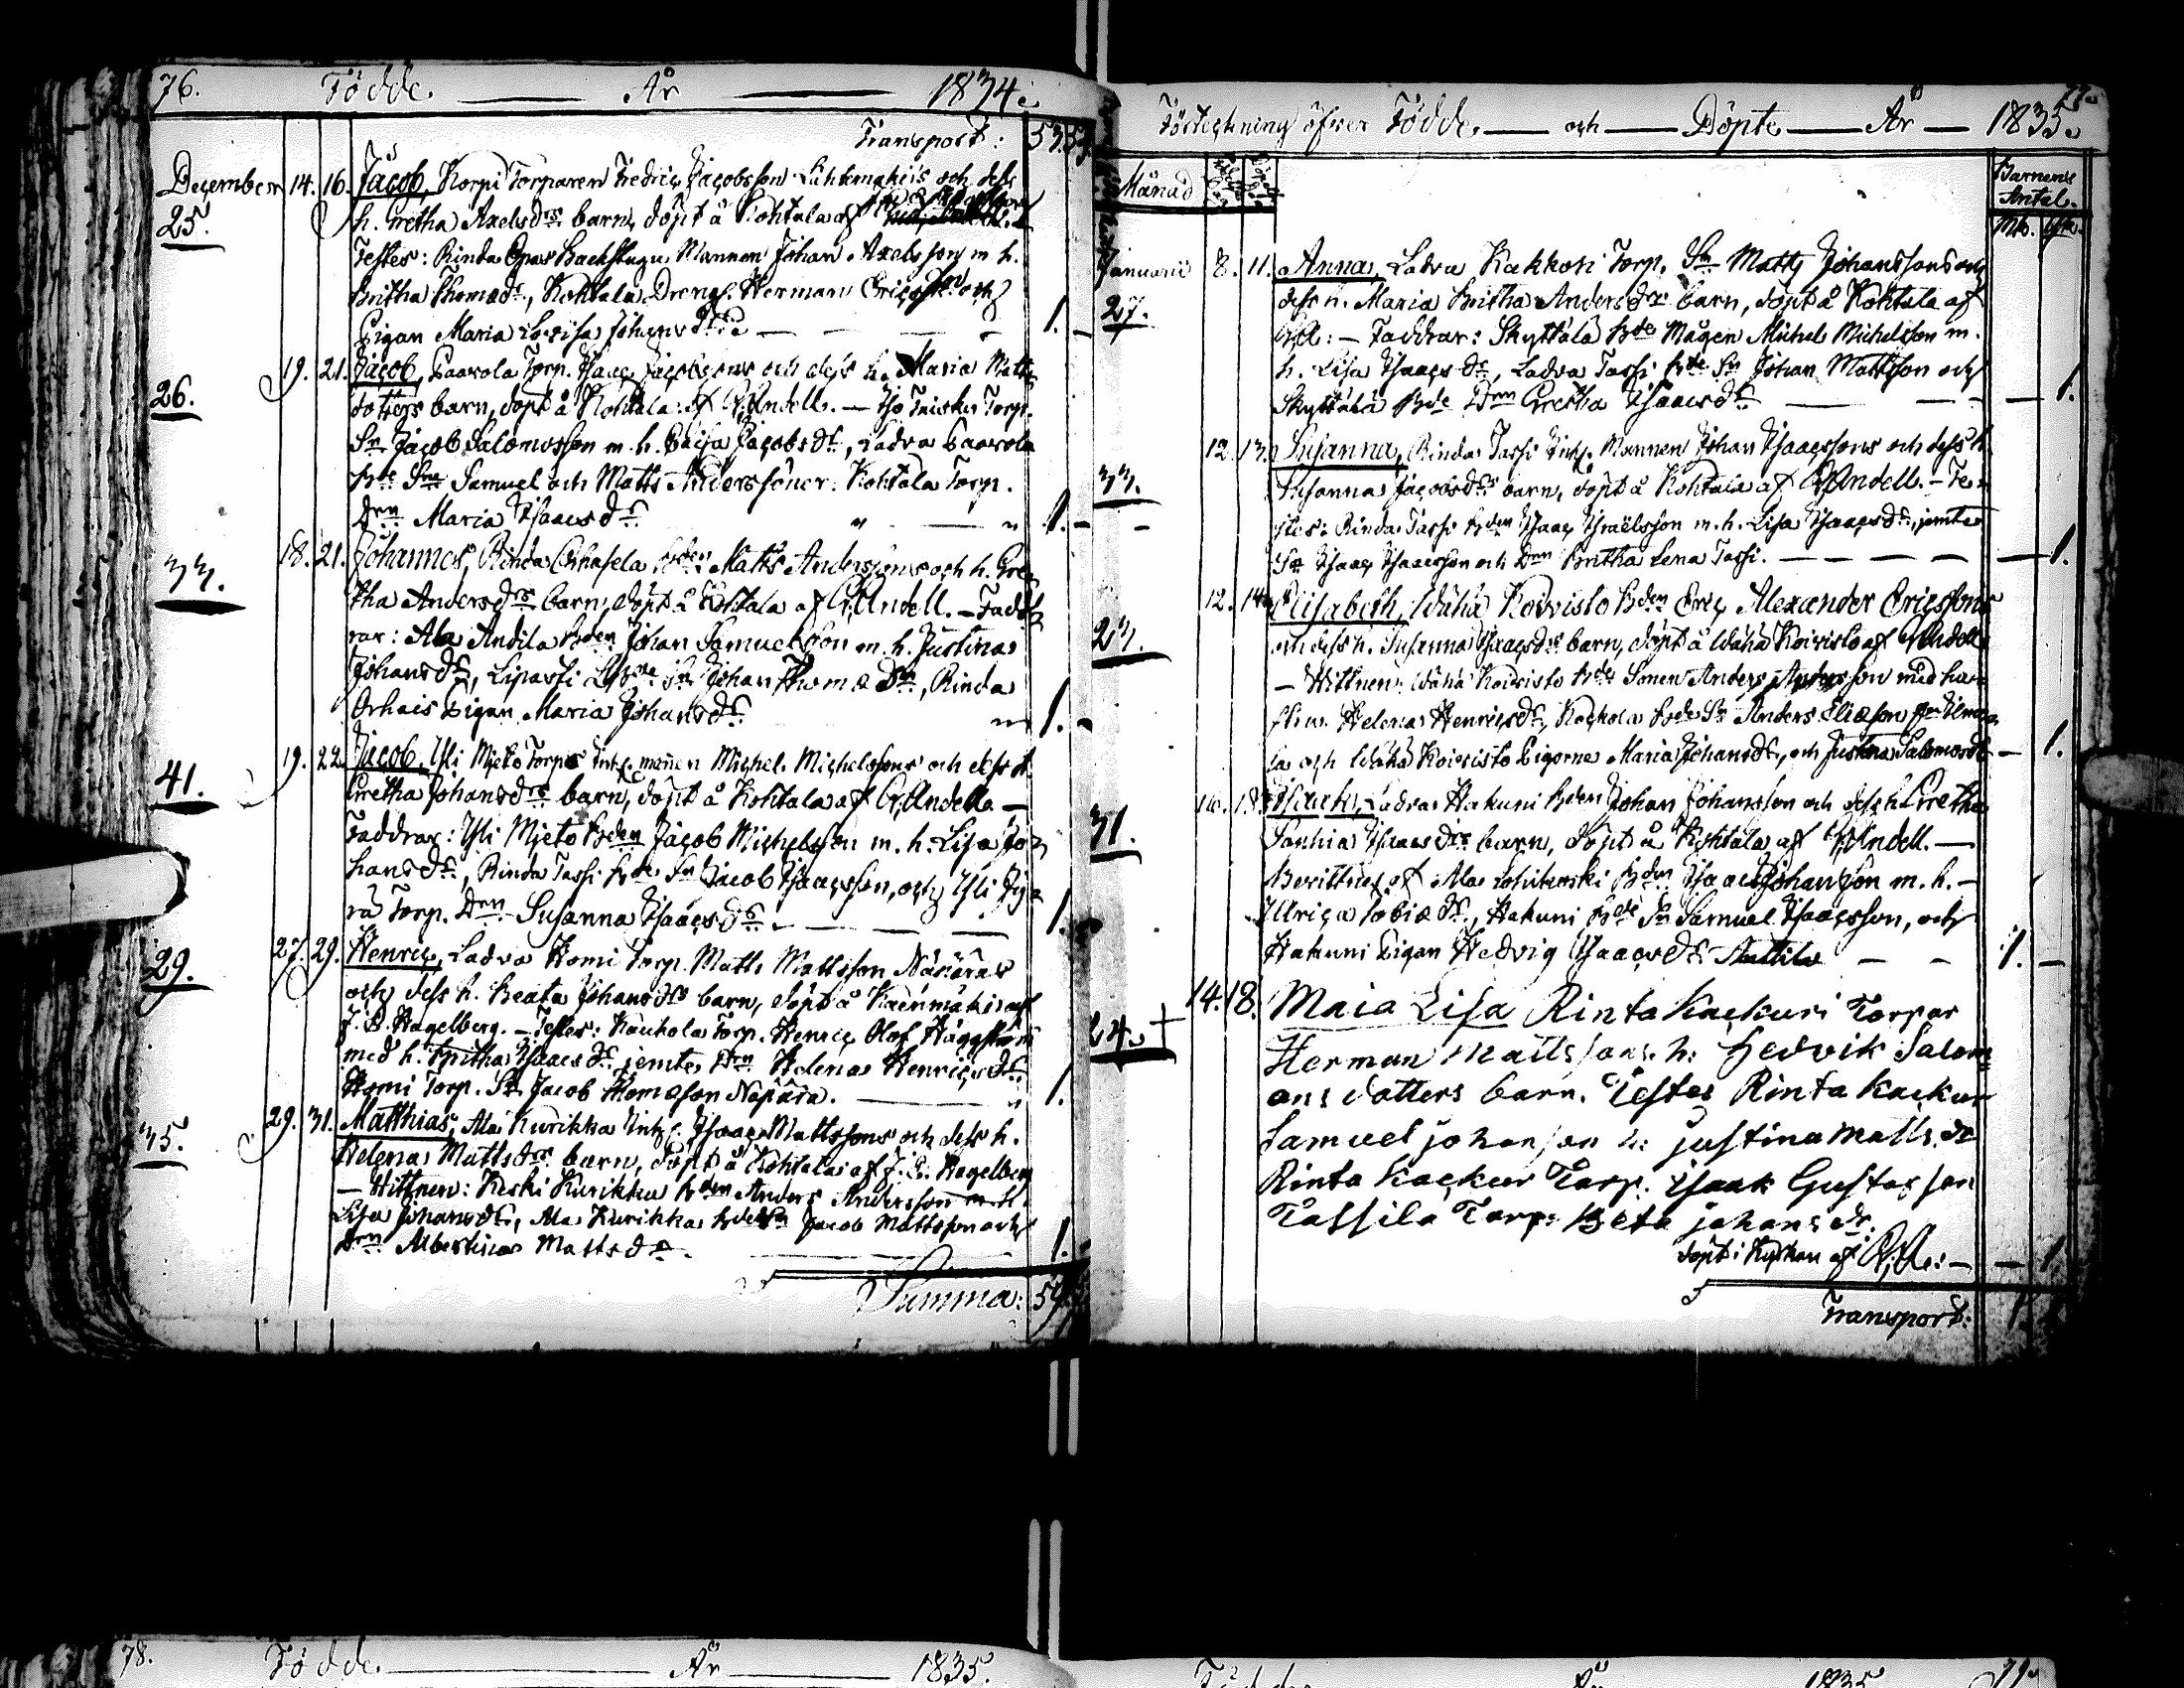 76. Födde. År 1834.
Transport: 53. 5
December 14. 16. Jacob, Korpi Torparen Fredric Jacobsson och dess
25. h. Gretha Axelsdrs barn, döpt å Kohtala af
Testes: Rinda Backstugu Mannen Johan Axelsson m. h.
Britha Thomædr, Kohtala Dreng. Herman Ericss. och
Pigan Maria Lovisa Johansdr 1. –
19. 21. Jacob, Paavola Torp. Isaac Jacobssons och dess h. Maria Matts
26. dotters barn, döpt å Kohtala af G. Andell. –
Sn Jacob Salomosson m. h. Caisa Jacobsdr, Ladva Paavola
Sne Samuel och Matts Anderssöner. Kohtala Torp.
Drn Maria Isaacsdr 1. –
33. 18. 21. Johannes, Rinda Bden Matts Anderssons och h. Gre
tha Andersdrs barn, döpt å Kohtala af G. Andell. – Fadd
rar: Ala Andila Bden Johan Samuelsson m. h. Justina
Johansdr, Lipasti Sn Johan Thomæsn, Rinda
Orhais Pigan Maria Johansdr 1. –
41. 19. 22. Jacob, Yli Mjeto Torps Inh. mannen Michel Michelssons och dess h.
Gretha Johansdrs barn, döpt å Kohtala af G. Andell –
Faddrar: Yli Mjeto Bden Jacob Michelsson m. h. Lisa Jo
hansdr, Rinda Tassi Bde Sn Jacob Isaacsson, och Yli Jy
rä Torp. Drn Susanna Isaacsdr. 1.
29. 27. 29. Henric, Ladva Homi Torp. Matts Mattsson Näpäräs
och dess h. Beata Johansdrs barn, döpt å Kaenmäki af
J. B. Hagelberg. – Testes: Kauhola Torp. Henric Olof Häggström
med h. Britha Isaacsdr jemte Drn Helena Henricsdr
Homi Torp. Sn Jacob Thomæson Näpärä. 1.
35. 29. 31. Matthias, Ala Kurikka Inh. Isaac Mattssons och dess h.
Helena Mattsdrs barn, döpt å Kohtala af J. B. Hagelberg
– Wittnen: Keski Kurikka Bden Anders Andersson m. h.
Lisa Johansdr, Ala Kurikka Bde Sn Jacob Mattsson och
Drn Albertina Mattsdr. 1.
Summa: 59.
77.
Förteckning öfver Födde och Döpte År 1835.
Månad Barnens
Antal.
Mk. Qk.
Januarii 8. 11. Anna, Ladva Kakkori Torp. Sn Matts Johanssons och
27. dess h. Maria Britha Andersdrs barn, döpt å Kohtala af
G. A.: – Faddrar: Skyttälä Bde Mågen Michel Michelsson m.
h. Lisa Isaacsdr, Ladva Tassi Bde Sn Johan Mattsson och
Skyttälä Bde Drn Gretha Isaacsdr – 1.
12. 13. Susanna, Rinda Tassi Inh. Mannen Johan Isaacssons och dess h.
33. Susanna Jacobsdrs barn, döpt å Kohtala af G. Andell. – Te
stes: Rinda Tassi Bden Isaac Israëlsson m. h. Lisa Isaacsdr, jemte
Sn Isaac Isaacsson och Drn Britha Lena Tassi. – 1.
12. 14. Elisabeth, Wähä Koivisto Bden Eric Alexander Ericssons
23. och dess h. Susanna Isaacsdrs barn, döpt å Wähä Koivisto af G. Andell
– Wittnen: Wähä Koivisto Bde Sonen Anders Andersson med hu
stru Helena Henricsdr, Kackola Bde Sn Anders Eliæson
la och Wähä Koivisto Pigorne Maria Johansdr, och Justina Salomosdr – 1.
16. 18. Isaach, Ladva Hakuni Bden Johan Johansson och dess h. Gretha
31. Sophia Isaacsdrs barn, döpt å Kohtala af G. Andell. –
Bevittnet af Ala Bden Isaac Johansson m. h. –
Ulrica Tobiædr, Hakuni Bde Sn Samuel Isaacsson, och
Hakuni Pigan Hedvig Isaacsdr Anttila 1. –
14. 18. Maia Lisa Rinta Kackuri Torpar
24. + Herman Mattssons h: Hedvik Salom
ons dotters barn. Testes Rinta Kackur
Samuel johansson h: justina Matts dr
Rinta Kackur Torp. Isaak Gustafsson
Tassila Torp: Beta johans dr.
döpt i Kyrkan af G. A.: – – 1.
Transport: 1.
78. Födde. År 1835.
Födde År 1835 79.